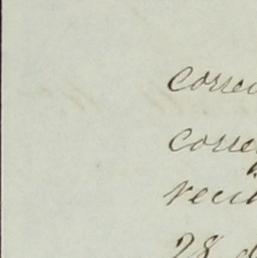 correc
corre
vecin
28 d